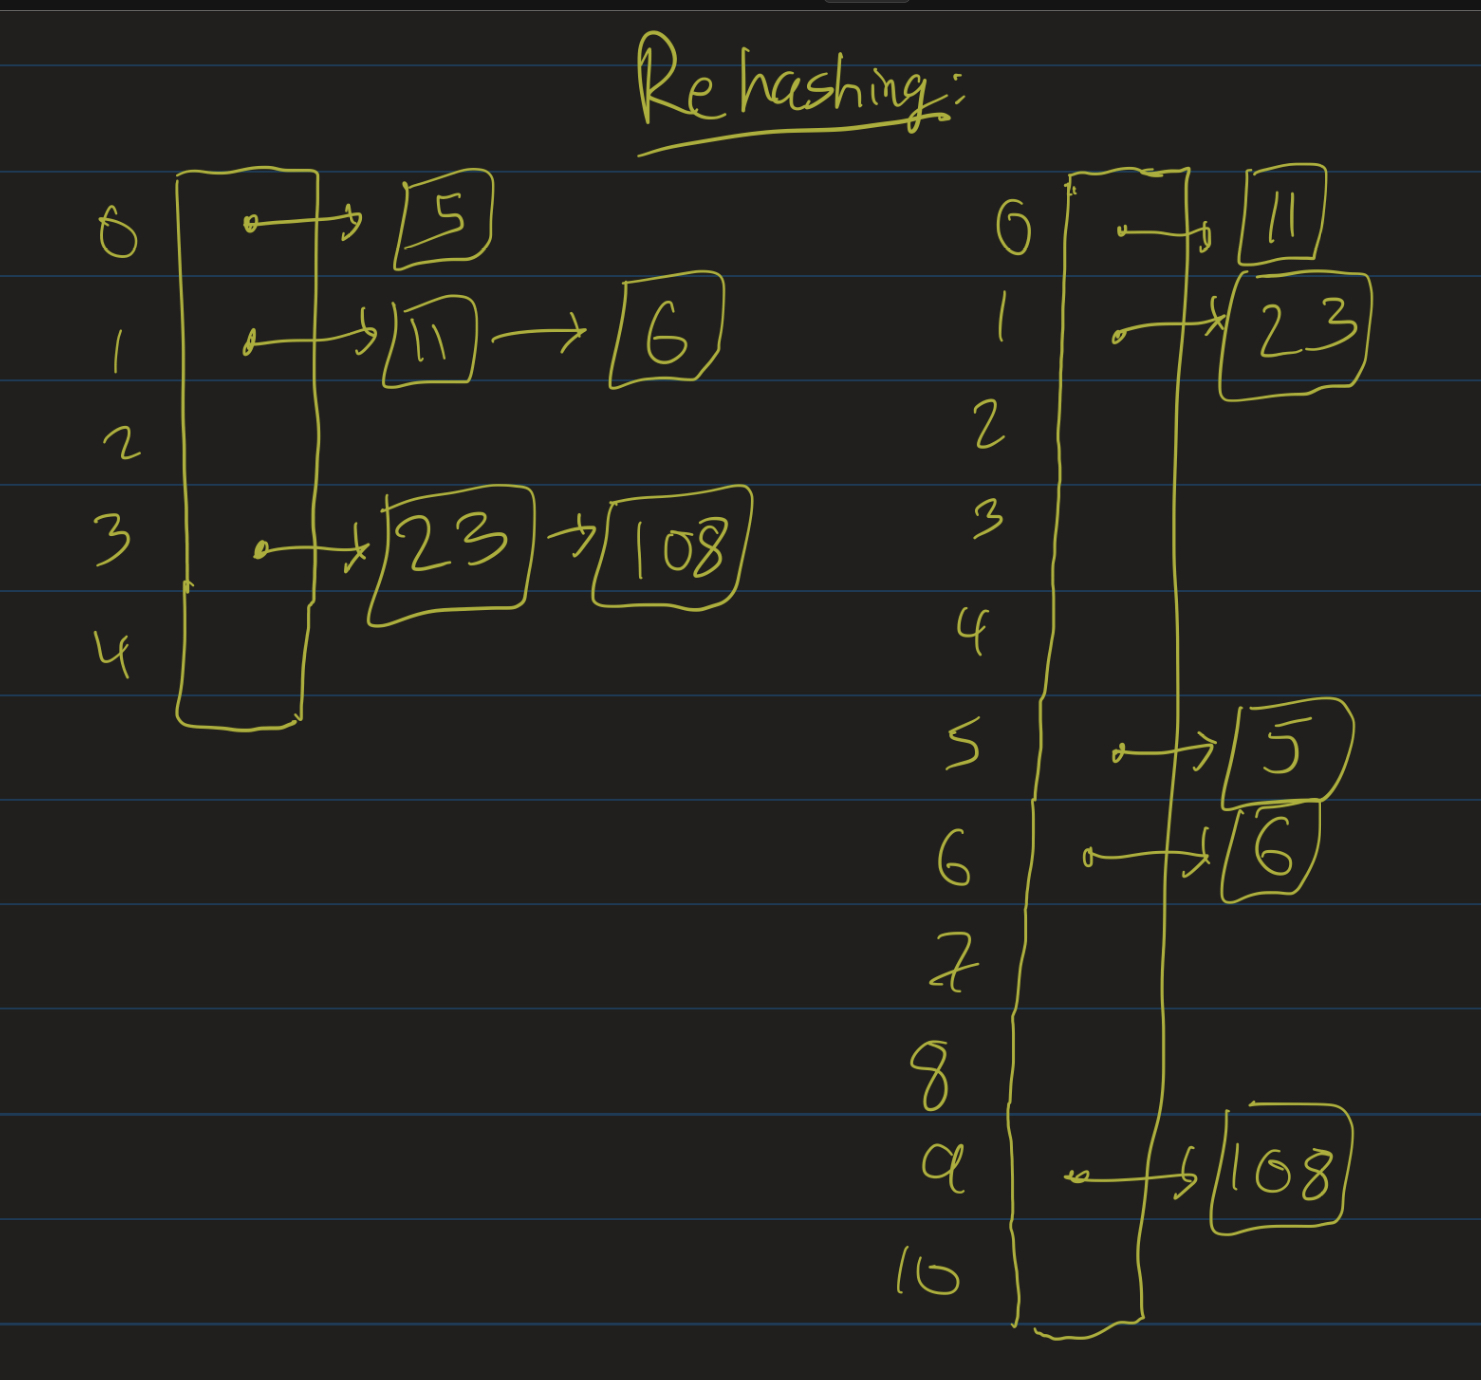 Rehashing:
0 5
1 11 6
2
3 23 108
4
0 11
1 23
2
3
4
5 5
6 6
7
8
9 108
10